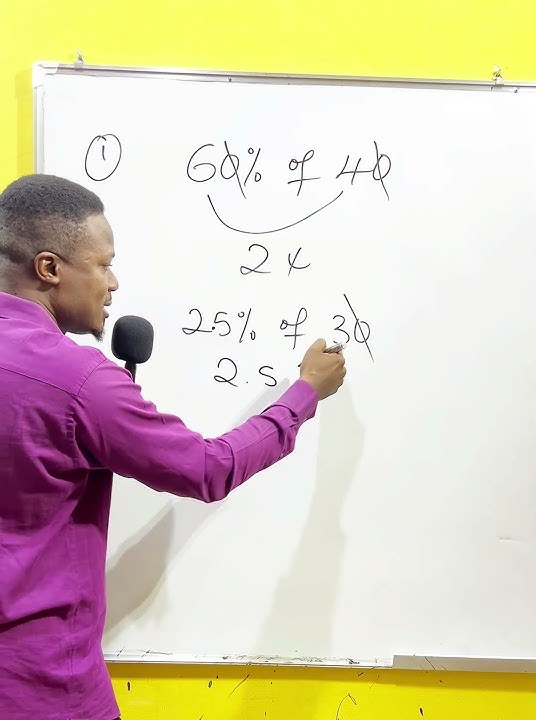 1 60% of 40
24
25% of 30
2.5